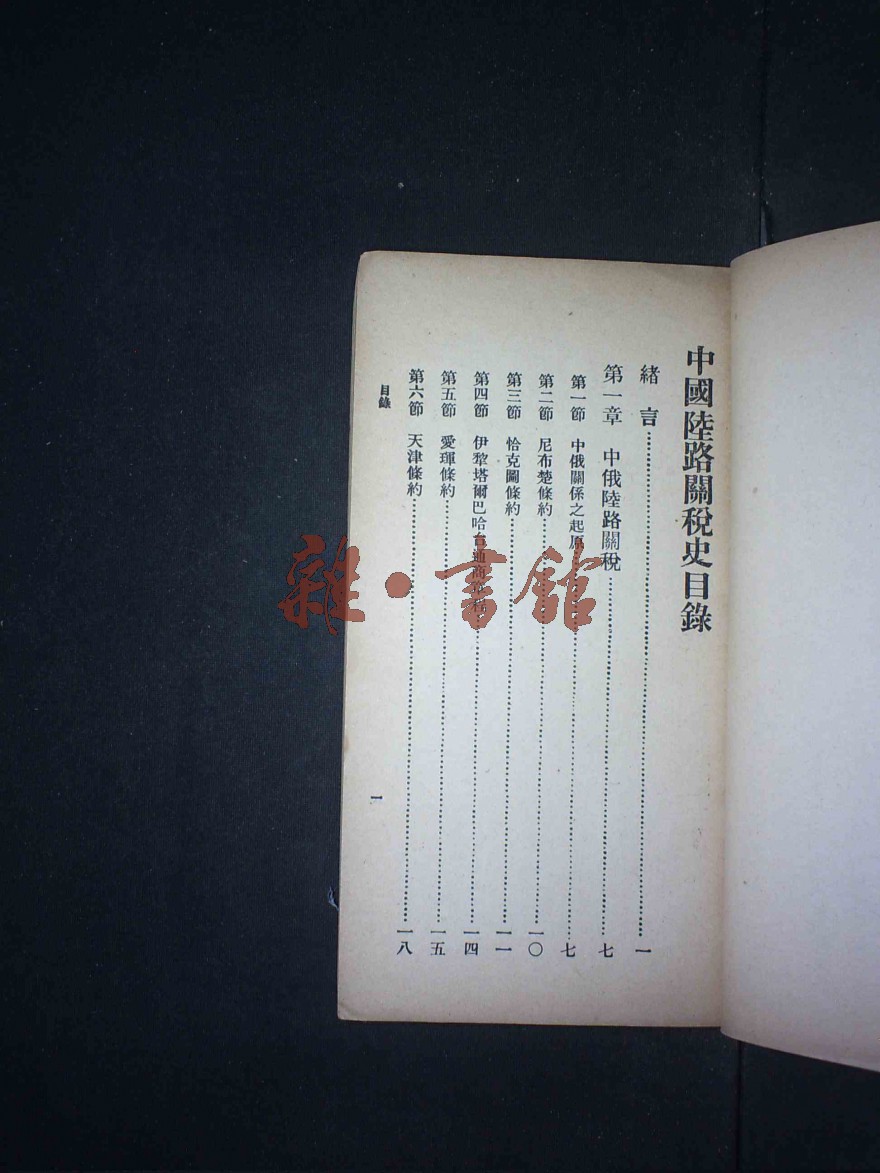 中國陸路關稅史目錄
緒言…………一
第一章 中俄陸路關稅…………七
第一節 中俄關係之起原…………七
第二節 尼布楚條約…………一〇
第三節 恰克圖條約…………一一
第四節 伊犂塔爾巴哈台通商章程…………一四
第五節 愛琿條約…………一五
第六節 天津條約…………一八
目錄
一
雜·書館